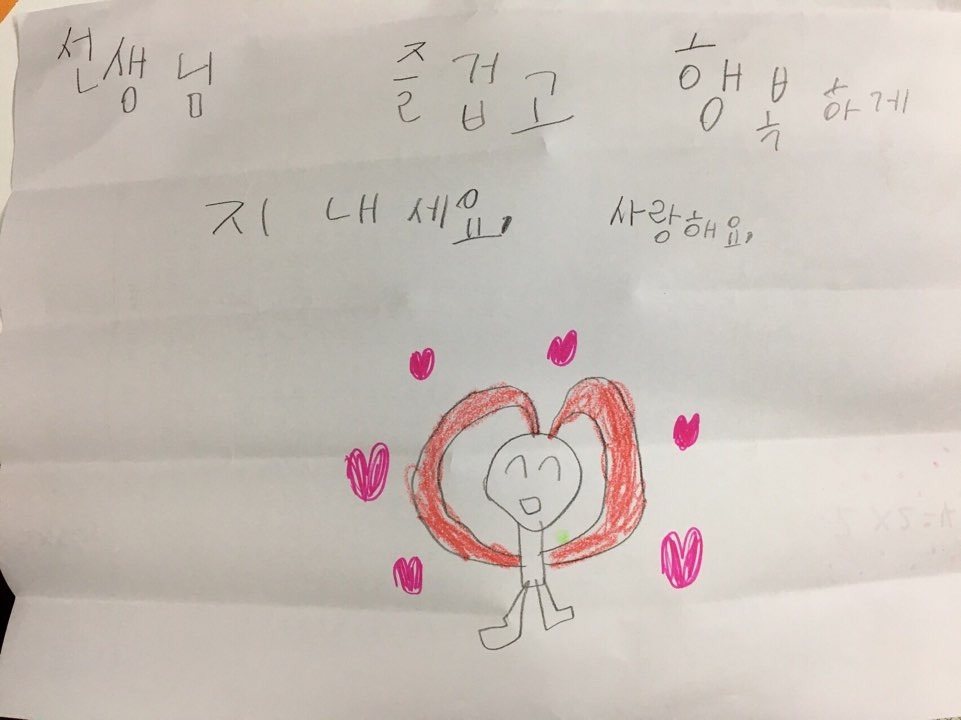 선생님 즐겁고 행복하게
지내세요. 사랑해요.